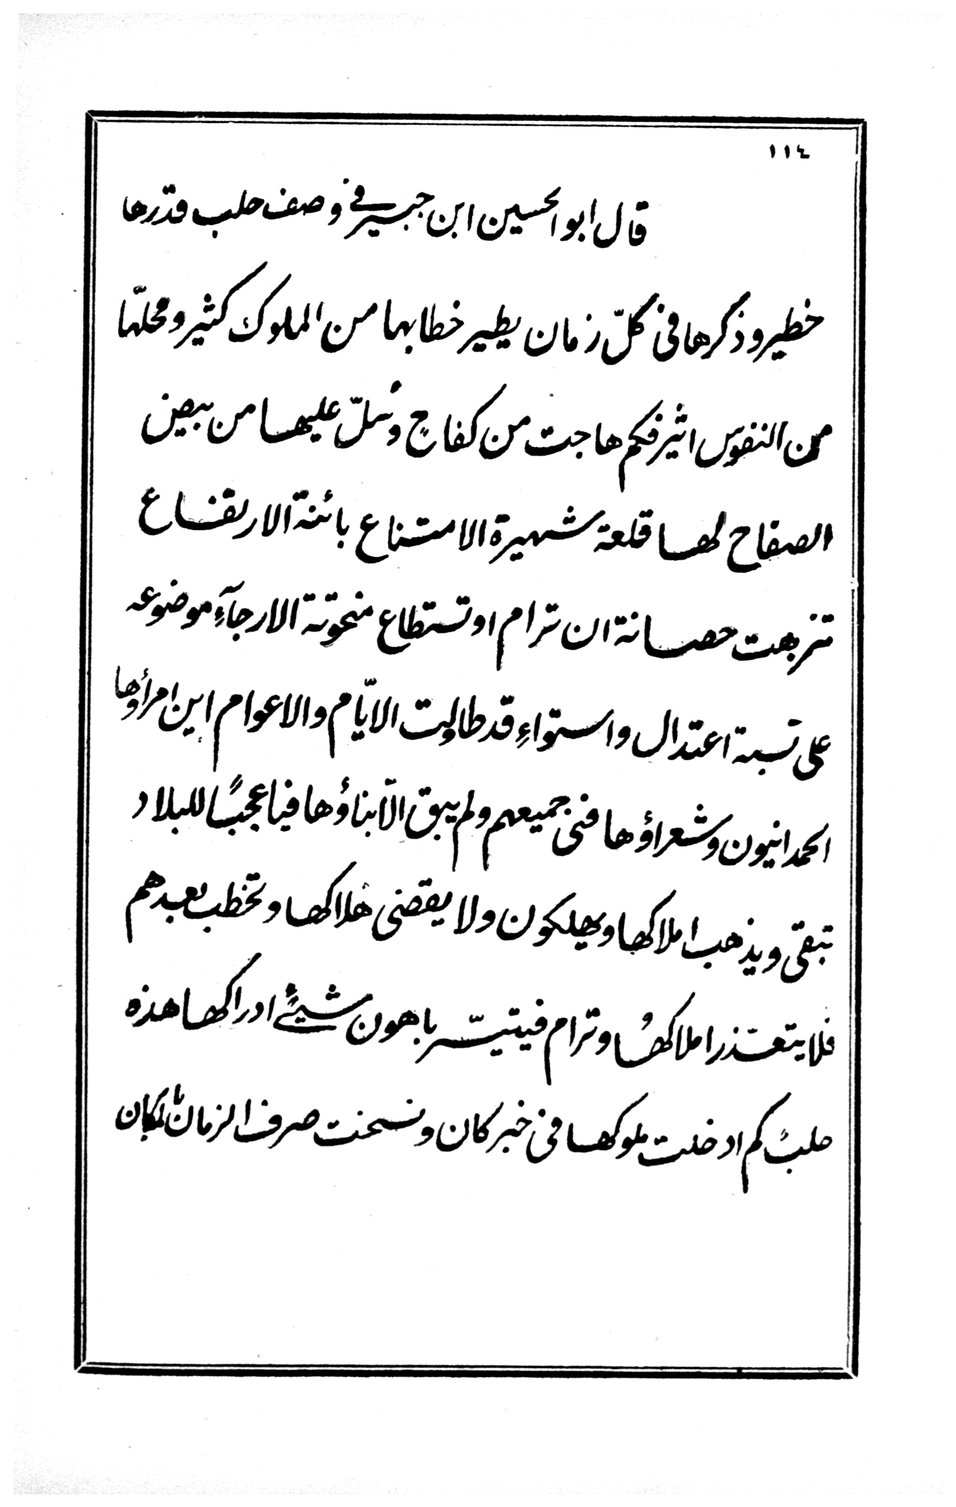 ١١٤
قال ابو الحسين ابن جبير في وصف حلب قدرها
خطير وذكرها في كلّ زمان يطير خطابها من الملوك كثير ومحلهّا
من النفوس اثير فكم هاجت من كفاح وسُلّ عليها من بيض
الصفاح لها قلعة شهيرة الامتناع بائنة الارتفاع
تنزهت حصانة ان ترام او تستطاع منحوتة الارجآءِ موضوعه
على نسبة اعتدال واستواءِ قد طاولت الايّام والاعوام اين امرأوها
الحمدانيون وشعراؤها فنى جميعهم ولم يبق الّا بناؤها فيا عجبًا للبلاد
تبقى ويذهب املاكها ويهلكون ولا يقضى هلاكها وتخطب بعدهم
فلا يتعذر املاكها وترام فيتيسّر باهون شيئٍ ادراكها هذه
حلبُ كم ادخلت ملوكها في خبر كان ونسخت صرف الزمان بالمكان